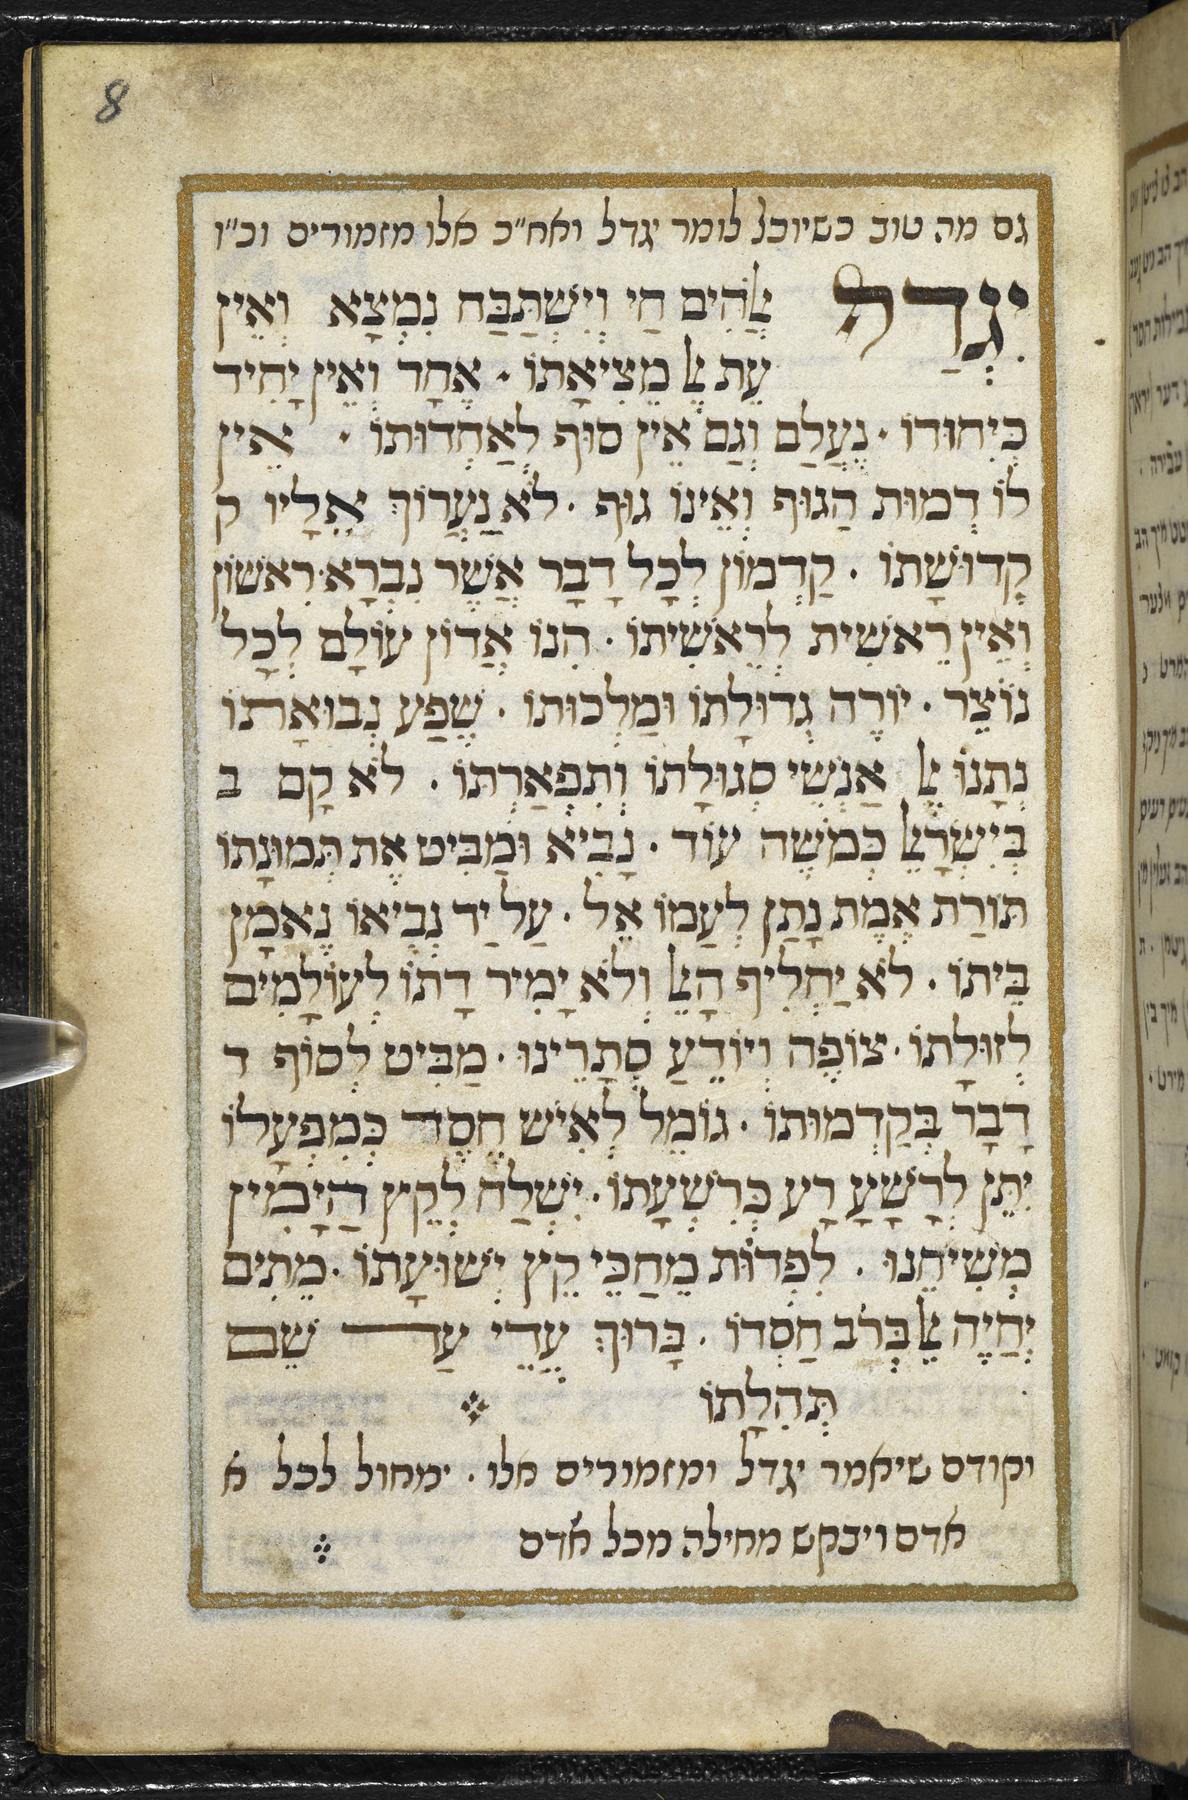 8
גם מה טוב כשיוכל לומר יגדל ואח״כ אלו מזמורים וכ״ו
יִגְדַל אֱלֹהִים חַי וְיִשְׁתַּבַּח נִמְצָא וְאֵין
עֵת אֶל מְצִיאָתוֹ · אֶחָד וְאֵין יָחִיד
כְּיִחוּדוֹ · נֶעֱלַם וְגַם אֵין סוֹף לְאַחְדוּתוֹ · אֵין
לוֹ דְמוּת הַגוּף וְאֵינוֹ גוּף · לֹא נַעֲרוֹךְ אֵלָיו ק
קְדוּשָׁתוֹ · קַדְמוֹן לְכָל דָבָר אֲשֶׁר נִבְרָא · רִאשׁוֹן
וְאֵין רֵאשִׁית לְרֵאשִׁיתוֹ · הִנוֹ אֲדוֹן עוֹלָם לְכָל
נוֹצָר · יוֹרֶה גְדוּלָתוֹ וּמַלְכוּתוֹ · שֶׁפַע נְבוּאָתוֹ
נְתָנוֹ אֶל אַנְשֵׁי סְגוּלָתוֹ וְתִפְאַרְתּוֹ · לֹא קָם ב
בְּיִשְׂרָאֵל כְּמֹשֶׁה עוֹד · נָבִיא וּמַבִּיט אֶת תְּמוּנָתוֹ
תּוֹרַת אֱמֶת נָתַן לְעַמוֹ אֵל · עַל יַד נְבִיאוֹ נֶאֱמַן
בֵּיתוֹ · לֹא יַחֲלִיף הָאֵל וְלֹא יָמִיר דָתוֹ לְעוֹלָמִים
לְזוּלָתוֹ · צוֹפֶה וְיוֹדֵעַ סְתָרֵינוּ · מַבִּיט לְסוֹף ד
דָבָר בְּקַדְמוּתוֹ · גוֹמֵל לְאִישׁ חֶסֶד כְּמִפְעָלוֹ
יִתֵּן לְרָשָׁע רָע כְּרִשְׁעָתוֹ · יִשְׁלַח לְקֵץ הַיָמִין
מְשִׁיחֵנוּ · לִפְדוֹת מְחַכֵּי קֵץ יְשׁוּעָתוֹ · מֵתִים
יְחַיֶה אֵל בְּרֹב חַסְדוֹ · בָּרוּךְ עֲדֵי עַד שֵׁם
תְּהִלָתוֹ
וקודם שיאמר יגדל ומזמורים אלו · ימחול לכל א
אדם ויבקש מחילה מכל אדם